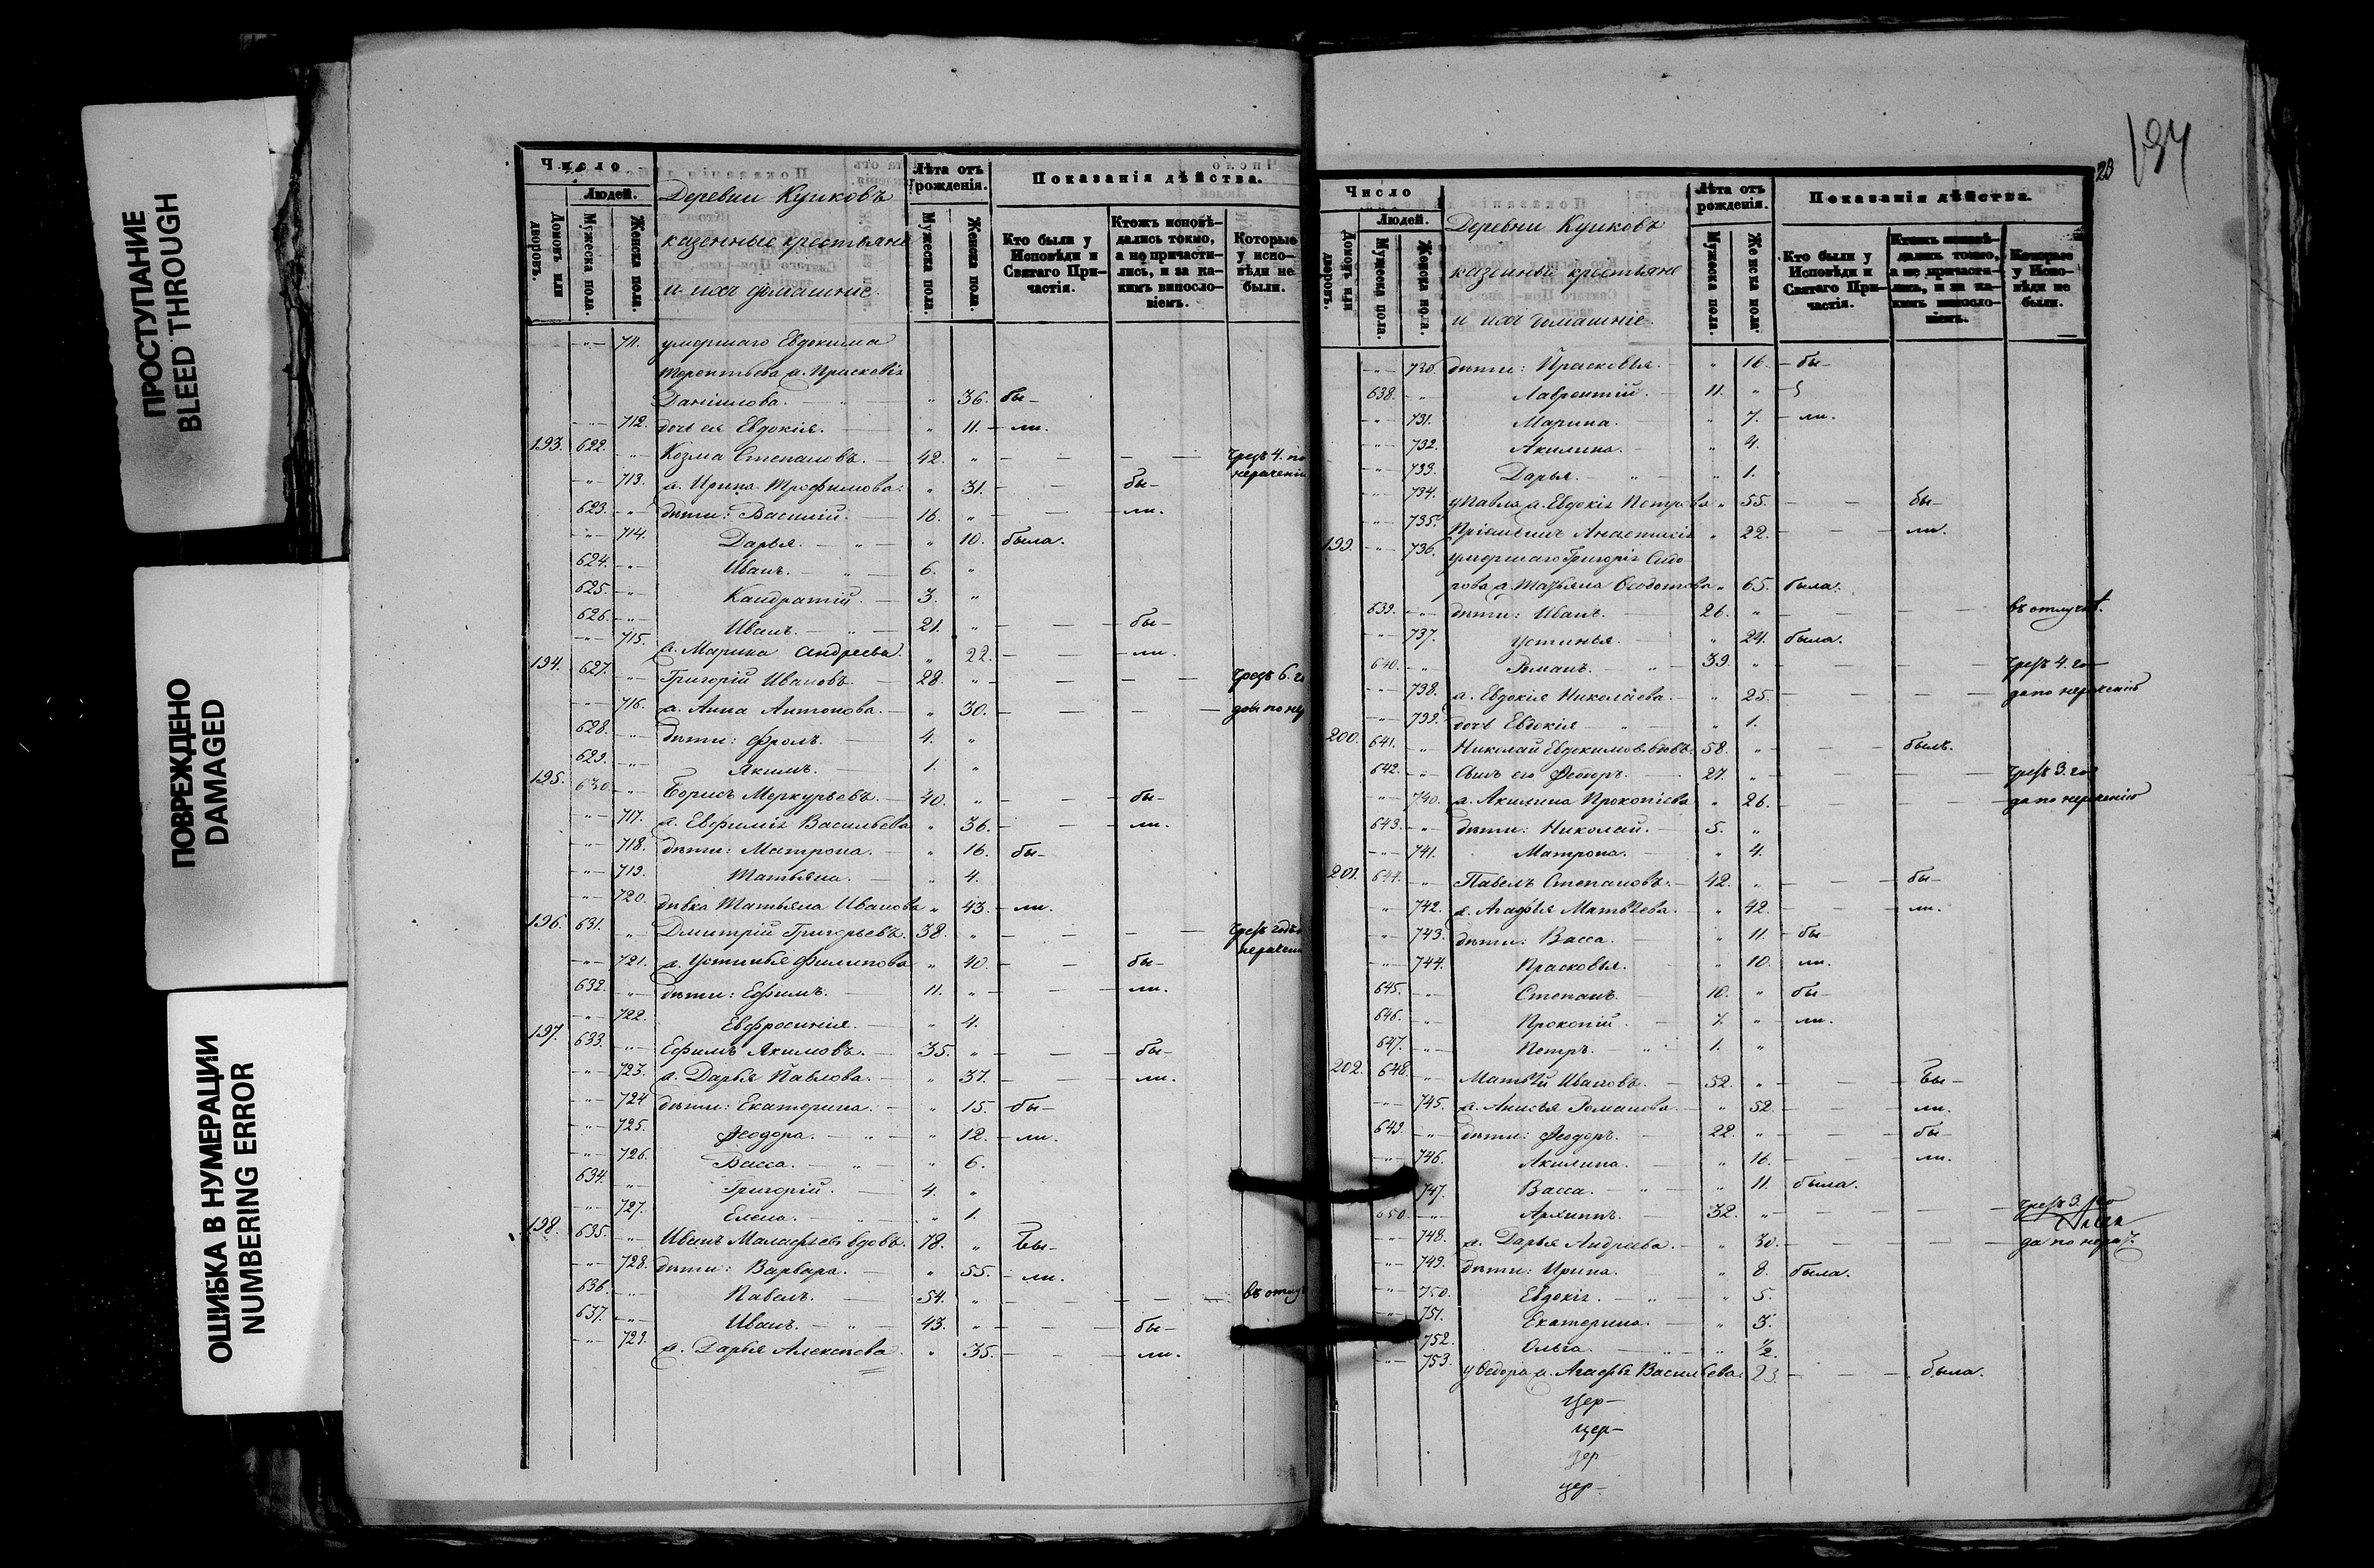 ПРОСТУПАНИЕ
BLEED THROUGH
ПОВРЕЖДЕНО
DAMAGED
ОШИБКА В НУМЕРАЦИИ
NUMBERING ERROR
Число
Людей.
Домовъ или дворовъ.
Мужеска пола.
Женска пола.
Деревни Кушковъ
казенные крестьяне
и ихъ домашние.
Лѣта отъ рожденія.
Мужеска пола.
Женска пола.
Показанія дѣйства.
Кто были у Исповѣди и Святаго Причастія.
Ктожъ исповѣдались токмо, а не причастились, и за какимъ винословіемъ.
Которые у исповѣди не были.
711. умершаго Евдокима
Терентьева ж. Праскевія
Даніилова. 36. бы-
712. дочь ея Евдокія. 11. ли.
193. 622. Козма Степановъ. 42. чрезъ 4. по
нерачені
713. ж. Ирина Трофимова. 31. бы-
623. дѣти: Василій. 16. ли.
714. Дарья. 10. была.
624. Иванъ. 6.
625. Кандратій. 3.
626. Иванъ. 21. бы-
715. ж. Марина Андреева. 22. ли.
194. 627. Григорій Ивановъ. 28. чрезъ 6. го
716. ж. Анна Антонова. 30. довъ по нер
628. дѣти: Фролъ. 4.
629. Якимъ. 1.
195. 630. Борисъ Меркурьевъ. 40. бы-
717. ж. Евфимія Васильева 36. ли.
718. дѣти: Матрона. 16. бы-
719. Татьяна. 4.
720. дѣвка Татьяна Иванова 43. ли.
196. 631. Дмитрій Григорьевъ. 38. чрезъ годъ
нерачен
721. ж. Устинья Филипова 40. бы-
632. дѣти: Ефимъ. 11. ли.
722. Евфросинія. 4.
197. 633. Ефимъ Якимовъ. 35. бы-
723. ж. Дарья Павлова. 37. ли.
724 дѣти: Екатерина. 15. бы-
725. Ѳеодора. 12. ли.
726. Васса. 6.
634. Григорій. 4.
727. Елена. 1.
198. 635. Иванъ Малафеевъ вдовъ. 78. бы-
728. дѣти: Варвара. 55. ли.
636. Павелъ. 54. въ отлу
637. Иванъ. 43. бы-
729. ж. Дарья Алексѣева. 35. ли.
23
Число
Людей.
Домовъ или дворовъ.
Мужеска пола.
Женска пола.
Деревни Кушковъ
казенные крестьяне
и ихъ домашніе.
Лѣта отъ рожденія.
Мужеска пола.
Женска пола.
Показанія дѣйства.
Кто были у Исповѣди и Святаго Причастія.
Ктожъ исповѣдались токмо, а не причастились, и за какимъ винословіемъ.
Которые у Исповѣди не были.
730. дѣти: Прасковья. 16. бы-
638. Лаврентій. 11.
731. Марина. 7. ли.
732. Акилина. 4.
733. Дарья. 1.
734. у Павла ж. Евдокія Петрова 55. бы-
735. Анастасія 22. ли.
199. 736. умершаго Григорія Сидо
рова ж. Татьяна Ѳеодотова 65. была.
639. дѣти: Иванъ. 26. въ отлучкѣ.
737. Устинья. 24. была.
640. Романъ. 39. чрезъ 4. го-
738. ж. Евдокія Николаева. 25. да по нерачению
739. дочь Евдокія 1.
200. 641. Николай Евдокимовъ вдовъ. 58. былъ.
642. Сынъ его Ѳеодоръ. 27. чрезъ 3. го-
740. ж. Акилина Прокопіева 26. да по нерачению
643. дѣти: Николай. 5.
741. Матрона. 4.
201. 644. Павелъ Степановъ. 42. бы-
742. ж. Агафья Матвѣева. 42. ли.
743. дѣти: Васса. 11. бы-
744. Прасковья. 10. ли.
645. Степанъ. 10. бы-
646. Прокопій. 7. ли.
647. Петръ. 1.
202. 648. Матвѣй Ивановъ. 52. бы-
745. ж. Анисья Романова. 52. ли.
649. дѣти: Ѳеодоръ. 22. бы-
746. Акилина. 16. ли.
747. Васса. 11. была.
650. Архипъ. 32. чрезъ 3. го
748. ж. Дарья Андреева. 30. да по нерач.
749. дѣти: Ирина. 8. была.
750. Евдокія. 5.
751. Екатерина. 3.
752. Ольга. ½.
753. у Ѳедора ж. Агафья Васильева. 23. была.
Цер-
цер-
цер-